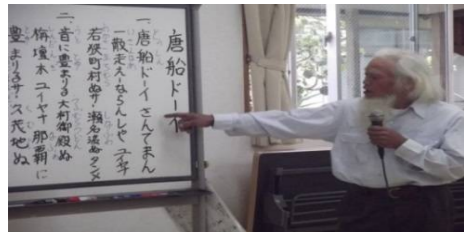 唐船ドーイ
一、唐船ドーイさんてまん
一散走えーならんしや ユイヤナ
若狭町村ぬサー瀬名波ぬタンメー
二、音に豊まりる大村御殿ぬ
栴壇木 ユイヤナ 那覇に
豊まりるサー久茂地ぬ